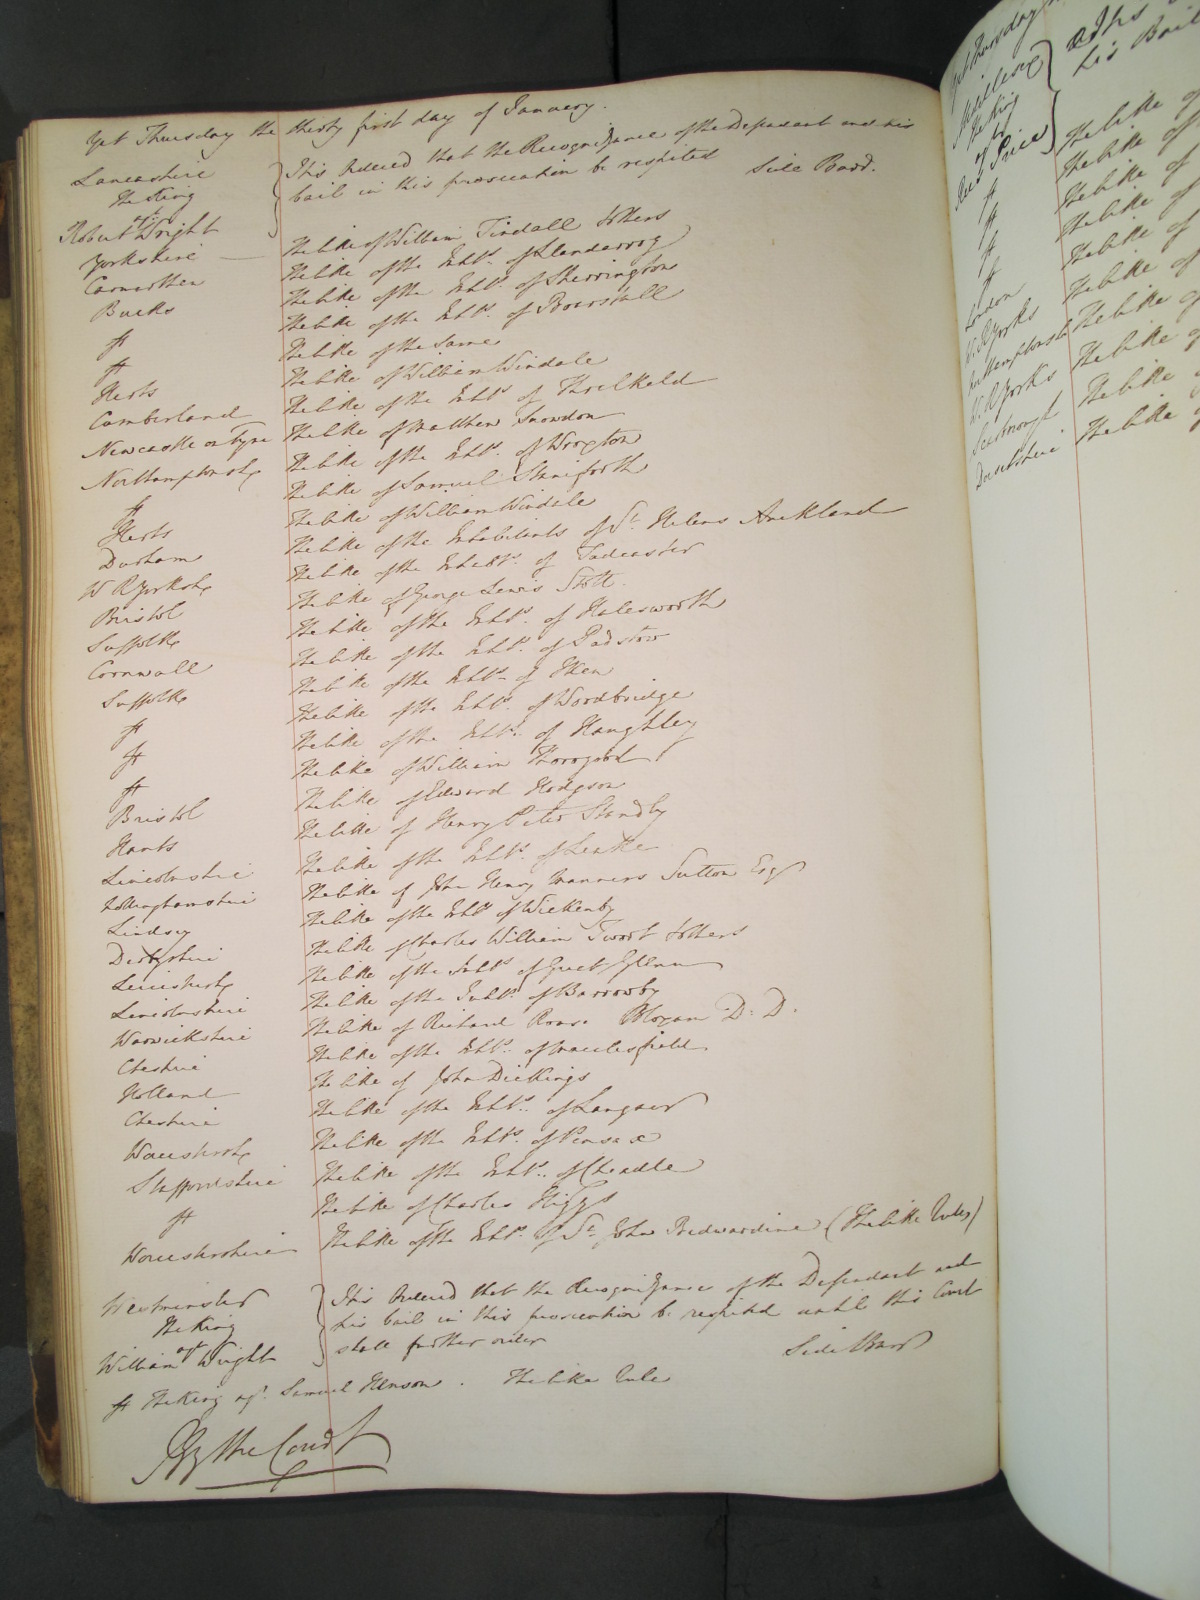 Yet Thursday the thirty first day of January.
Lancashire
The King
agt
Robert Wright
It is Ordered that the Recognizance of the Defendant and his
bail in this prosecution be respited Side Barr.
Yorkshire The like of William Tindall & others
Carmarthen The like of the Inhts. of Llandarrog
Bucks The like of the Inhts. of Sherrington
ft The like of the Inhts. of Boarstall
ft The like of the same
Herts The like of William Windale
Cumberland The like of the Inhts. of Threlkeld
Newcastle on Tyne The like of Matthew Snowdon
Northamptonshe The like of the Inhts. of Wroxton
ft The like of Samuel Staniforth
Herts The like of William Windale
Durham The like of the Inhabitants of St. Helens Auckland
W R Yorkshe The like of the Inhabts. of Tadcaster
Bristol The like of George Lewis Stott.
Suffolk The like of the Inhts. of Halesworth
Cornwall The like of the Inhts. of Padstow
Suffolk The like of the Inhts. of Iken
ft The like of the Inhts. of Woodbridge
ft The like of the Inhts. of Haughley
ft The like of William Thorogood
Bristol The like of Edward Hodgson
Hants The like of Henry Peter Standby
Lincolnshire The like of the Inhts. of Leake
Nottinghamshire The like of John Henry Manners Sutton Esqr
Lindsey The like of the Inhts of Wickenby
Derbyshire The like of Charles William Twort & others
Leicestershe The like of the Inhts. of Great Glenn
Lincolnshire The like of the Inhts. of Barrowby
Warwickshire The like of Richard Morgan D. D.
Cheshire The like of the Inhts. of Macclesfield
Holland The like of John Dickings
Cheshire The like of the Inhts. of
Worcestershe The like of the Inhts. of Pensax
Staffordshire The like of the Inhts. of Cheadle
ft The like of Charles Higgs
Worcestershire The like of the Inhts. of St. John Bedwardine (The like Rules)
Westminster
The King
agt
William Wright
It is Ordered that the Recognizance of the Defendant and
his bail in this prosecution be respited until this Court
shall further order Side Barr
ft The King agt. Samuel Henson. The like Rule
By the Court
Yet Thursday
Middlesex
The King
agt
Price
It is
his Bail
The like of
ft The like of
ft The like of
ft The like of
ft The like of
London The like of
W. R Yorks The like of
The like of
W. R Yorks The like
Scarborough The like
Dorsetshire